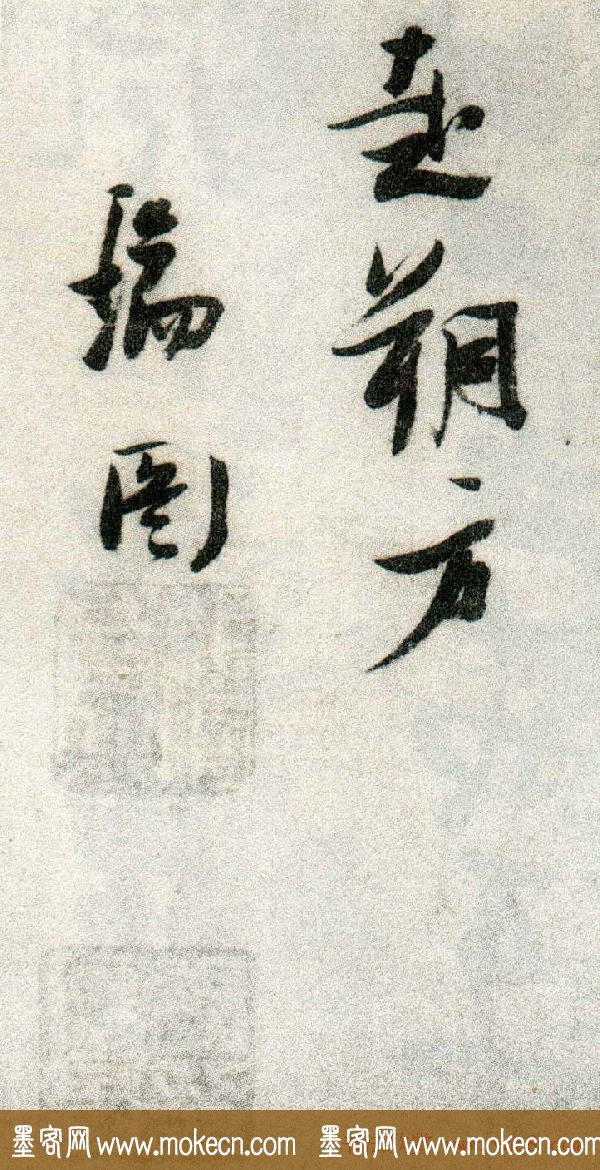 朔方
瑞圖
墨客网 www.mokecn.com 墨客网 www.mokecn.com